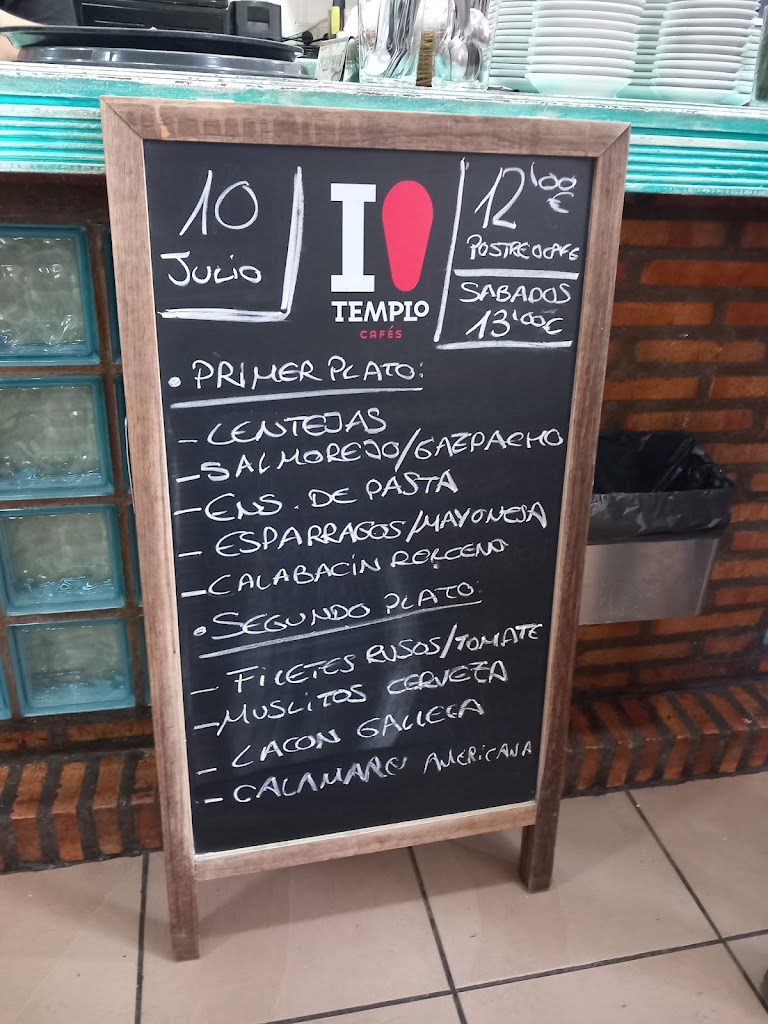 10
JULIO
I
TEMPLO
CAFÉS
12'00
€
POSTRE O CAFE
SABADOS
13'00€
• PRIMER PLATO:
- LENTEJAS
- SALMOREJO/GAZPACHO
- ENS. DE PASTA
- ESPARRAGOS/MAYONESA
- CALABACIN RELLENO
• SEGUNDO PLATO:
- FILETES RUSOS/TOMATE
- MUSLITOS CERVEZA
- LACON GALLEGA
- CALAMARES AMERICANA